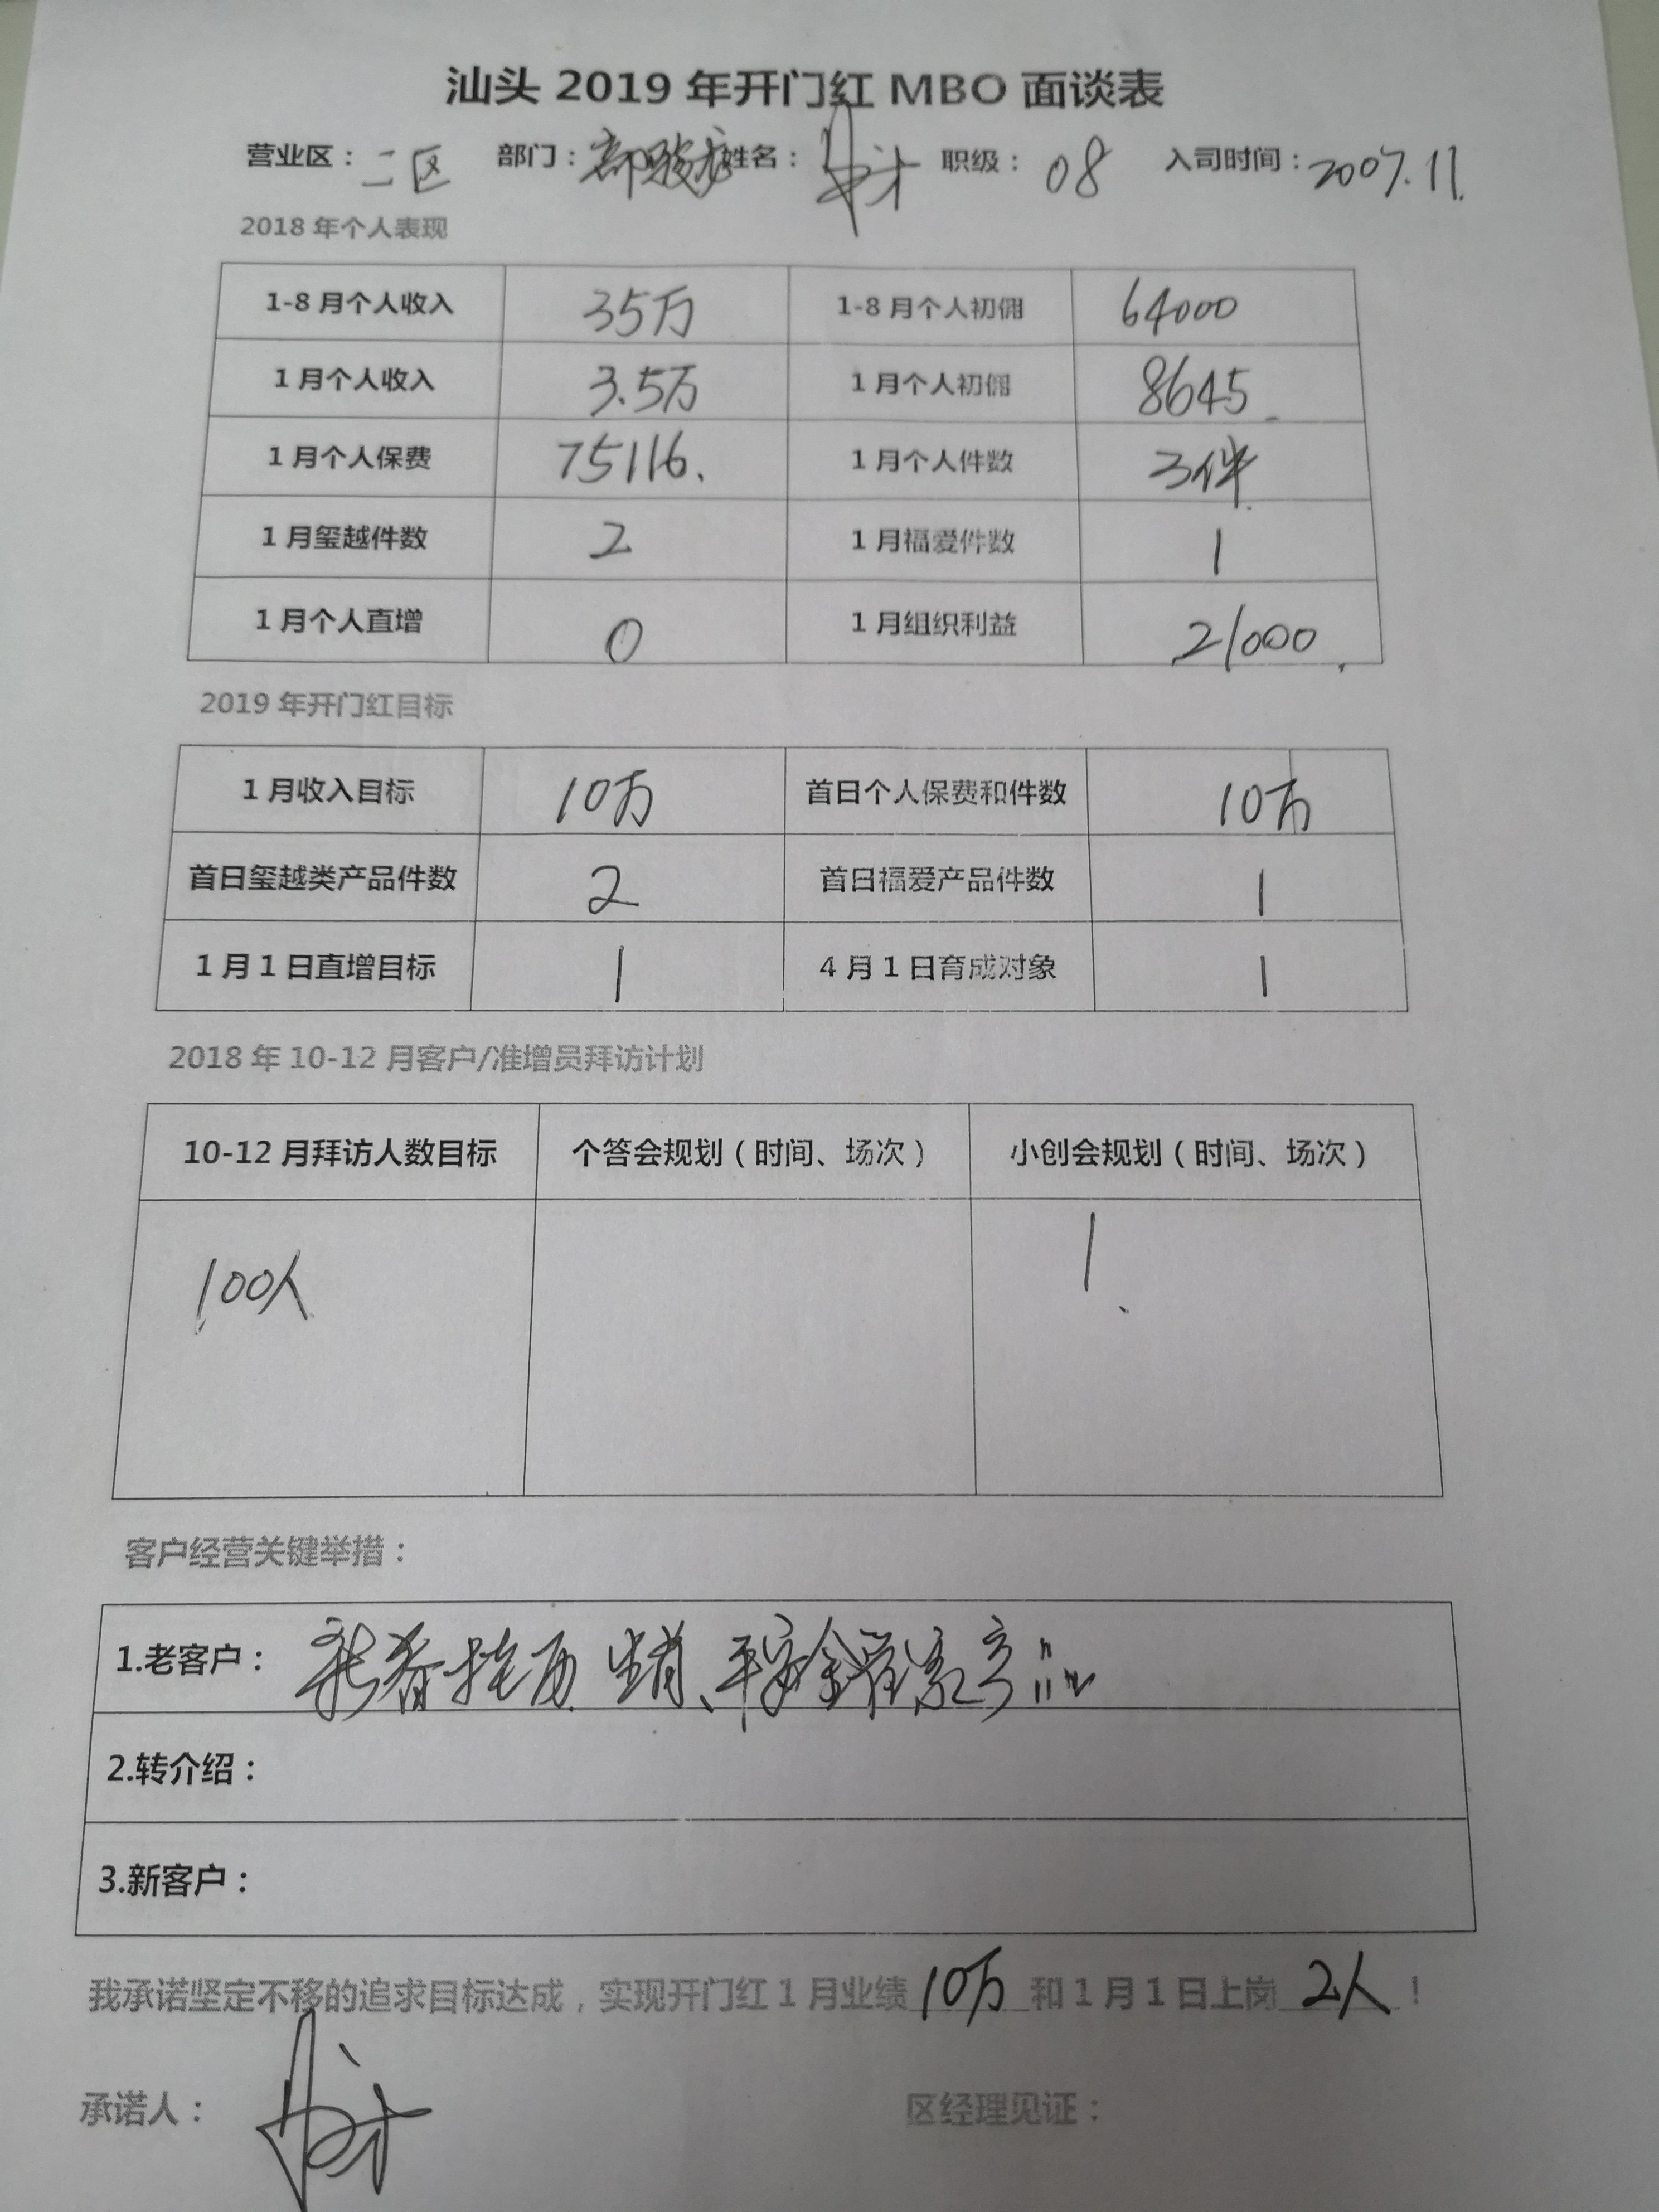 汕头 2019 年开门红 MBO 面谈表
营业区：二区 部门： 姓名： 职级：08 入司时间：2007.11.
2018 年个人表现
1-8 月个人收入 35万 1-8 月个人初佣 64000
1 月个人收入 3.5万 1 月个人初佣 8645
1 月个人保费 75116. 1 月个人件数 3件
1 月玺越件数 2 1 月福爱件数 1
1 月个人直增 0 1 月组织利益 21000
2019 年开门红目标
1 月收入目标 10万 首日个人保费和件数 10万
首日玺越类产品件数 2 首日福爱产品件数 1
1 月 1 日直增目标 1 4 月 1 日育成对象 1
2018 年 10-12 月客户/准增员拜访计划
10-12 月拜访人数目标 个答会规划（时间、场次） 小创会规划（时间、场次）
100人 1
客户经营关键举措：
1.老客户：新春挂历 生肖、平安金管家产品
2.转介绍：
3.新客户：
我承诺坚定不移的追求目标达成，实现开门红 1 月业绩 10万 和 1 月 1 日上岗 2人！
承诺人： 区经理见证：